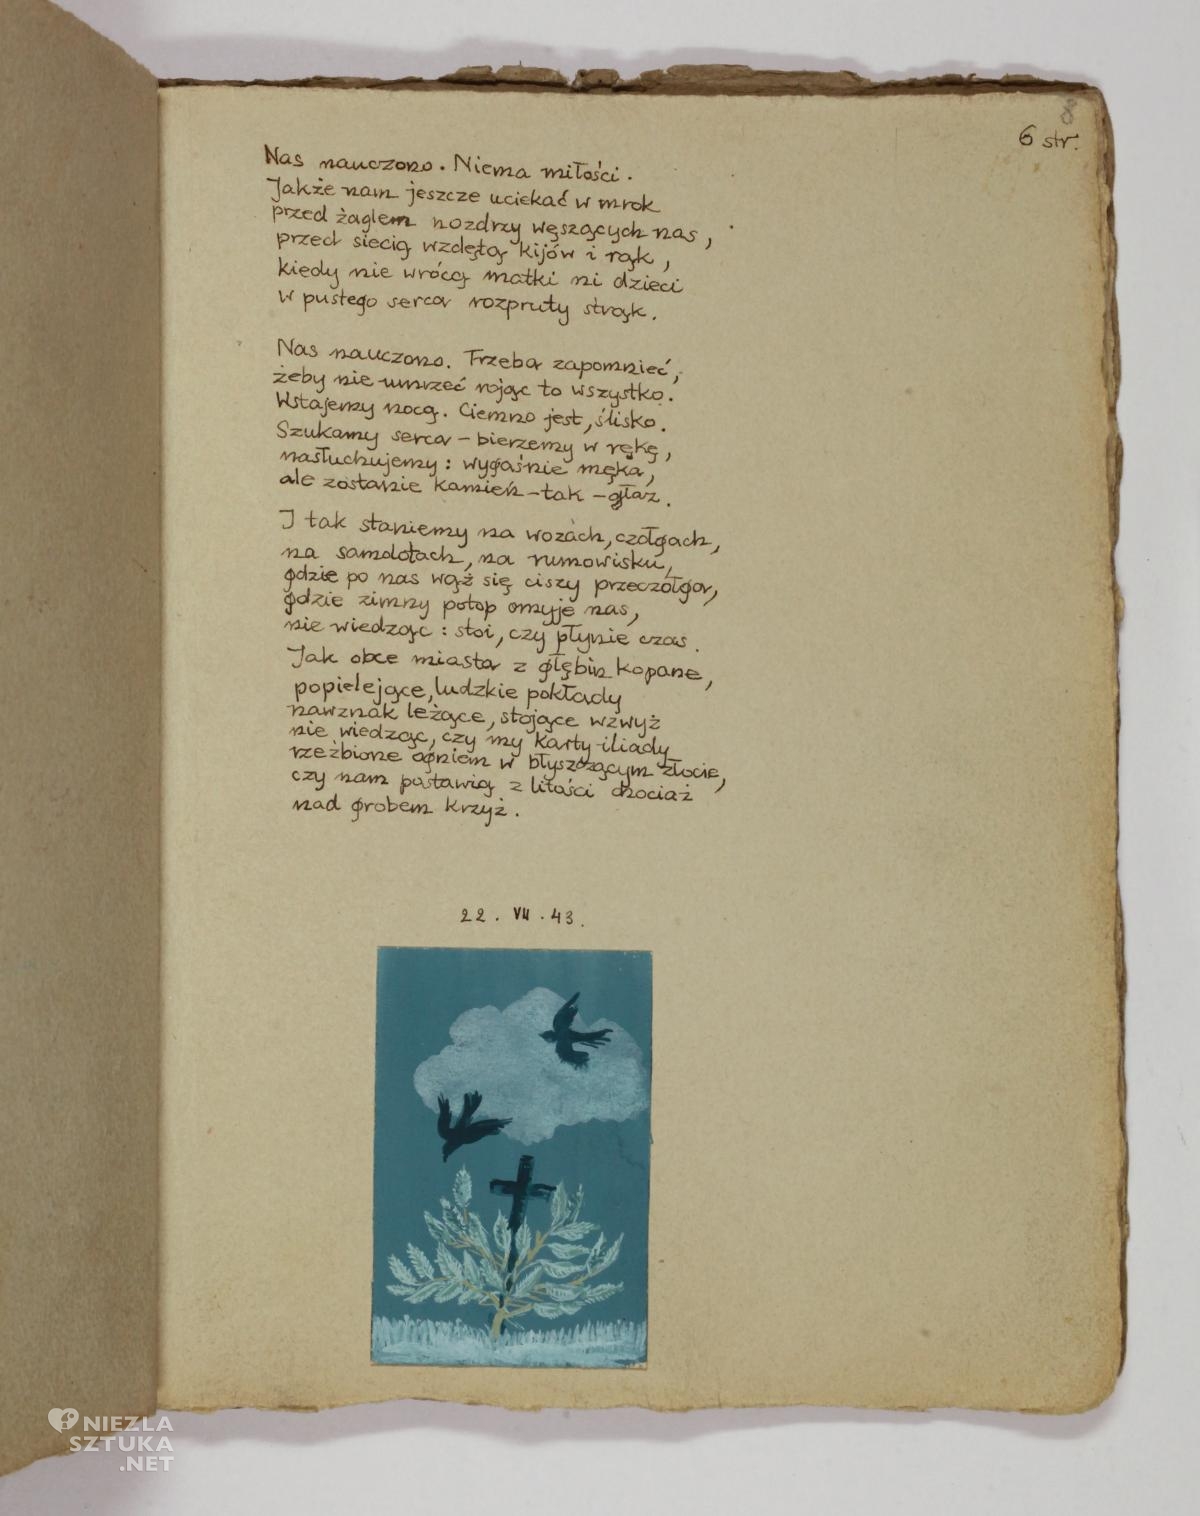 8
6 str.
Nas nauczono. Niema miłości.
Jakże nam jeszcze uciekać w mrok
przed żaglem nozdrzy węszących nas,
przed siecią wzdętą kijów i rąk,
kiedy nie wrócą matki ni dzieci
w pustego serca rozpruty strąk.
Nas nauczono. Trzeba zapomnieć,
żeby nie umrzeć rojąc to wszystko.
Wstajemy nocą. Ciemno jest, ślisko.
Szukamy serca – bierzemy w rękę,
nasłuchujemy: wygaśnie męka,
ale zostanie kamień – tak – głaz.
I tak staniemy na wozach, czołgach,
na samolotach, na rumowisku,
gdzie po nas wąż się ciszy przeczołga,
gdzie zimny potop omyje nas,
nie wiedząc: stoi, czy płynie czas.
Jak obce miasta z głębin kopane,
popielejące, ludzkie pokłady
nawznak leżące, stojące wzwyż
nie wiedząc, czy my karty iliady
rzeźbione ogniem w błyszczącym złocie,
czy nam postawią z litości chociaż
nad grobem krzyż.
22. VII. 43.
NIEZŁA
SZTUKA
.NET